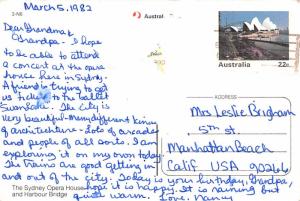 March 5, 1982
2-N6
Australia
Dear Grandma &
Grandpa - I hope
to be able to attend
a concert at the opera
house here in Sydney.
A friend is trying to get
us tickets to the ballet
Swan Lake. The City is
very beautiful - many different kinds
of architecture - lots of arcades
and people of all sorts. I am
exploring it on my own today.
The trains are good getting in
and out of the city. Today is your birthday, Grandpa,
hope it is happy. It is raining but
quite warm. Love, Nancy
The Sydney Opera House
and Harbour Bridge
Australia 22c
Mrs Leslie Brigham
5th st.
Manhattan Beach
Calif USA 90266